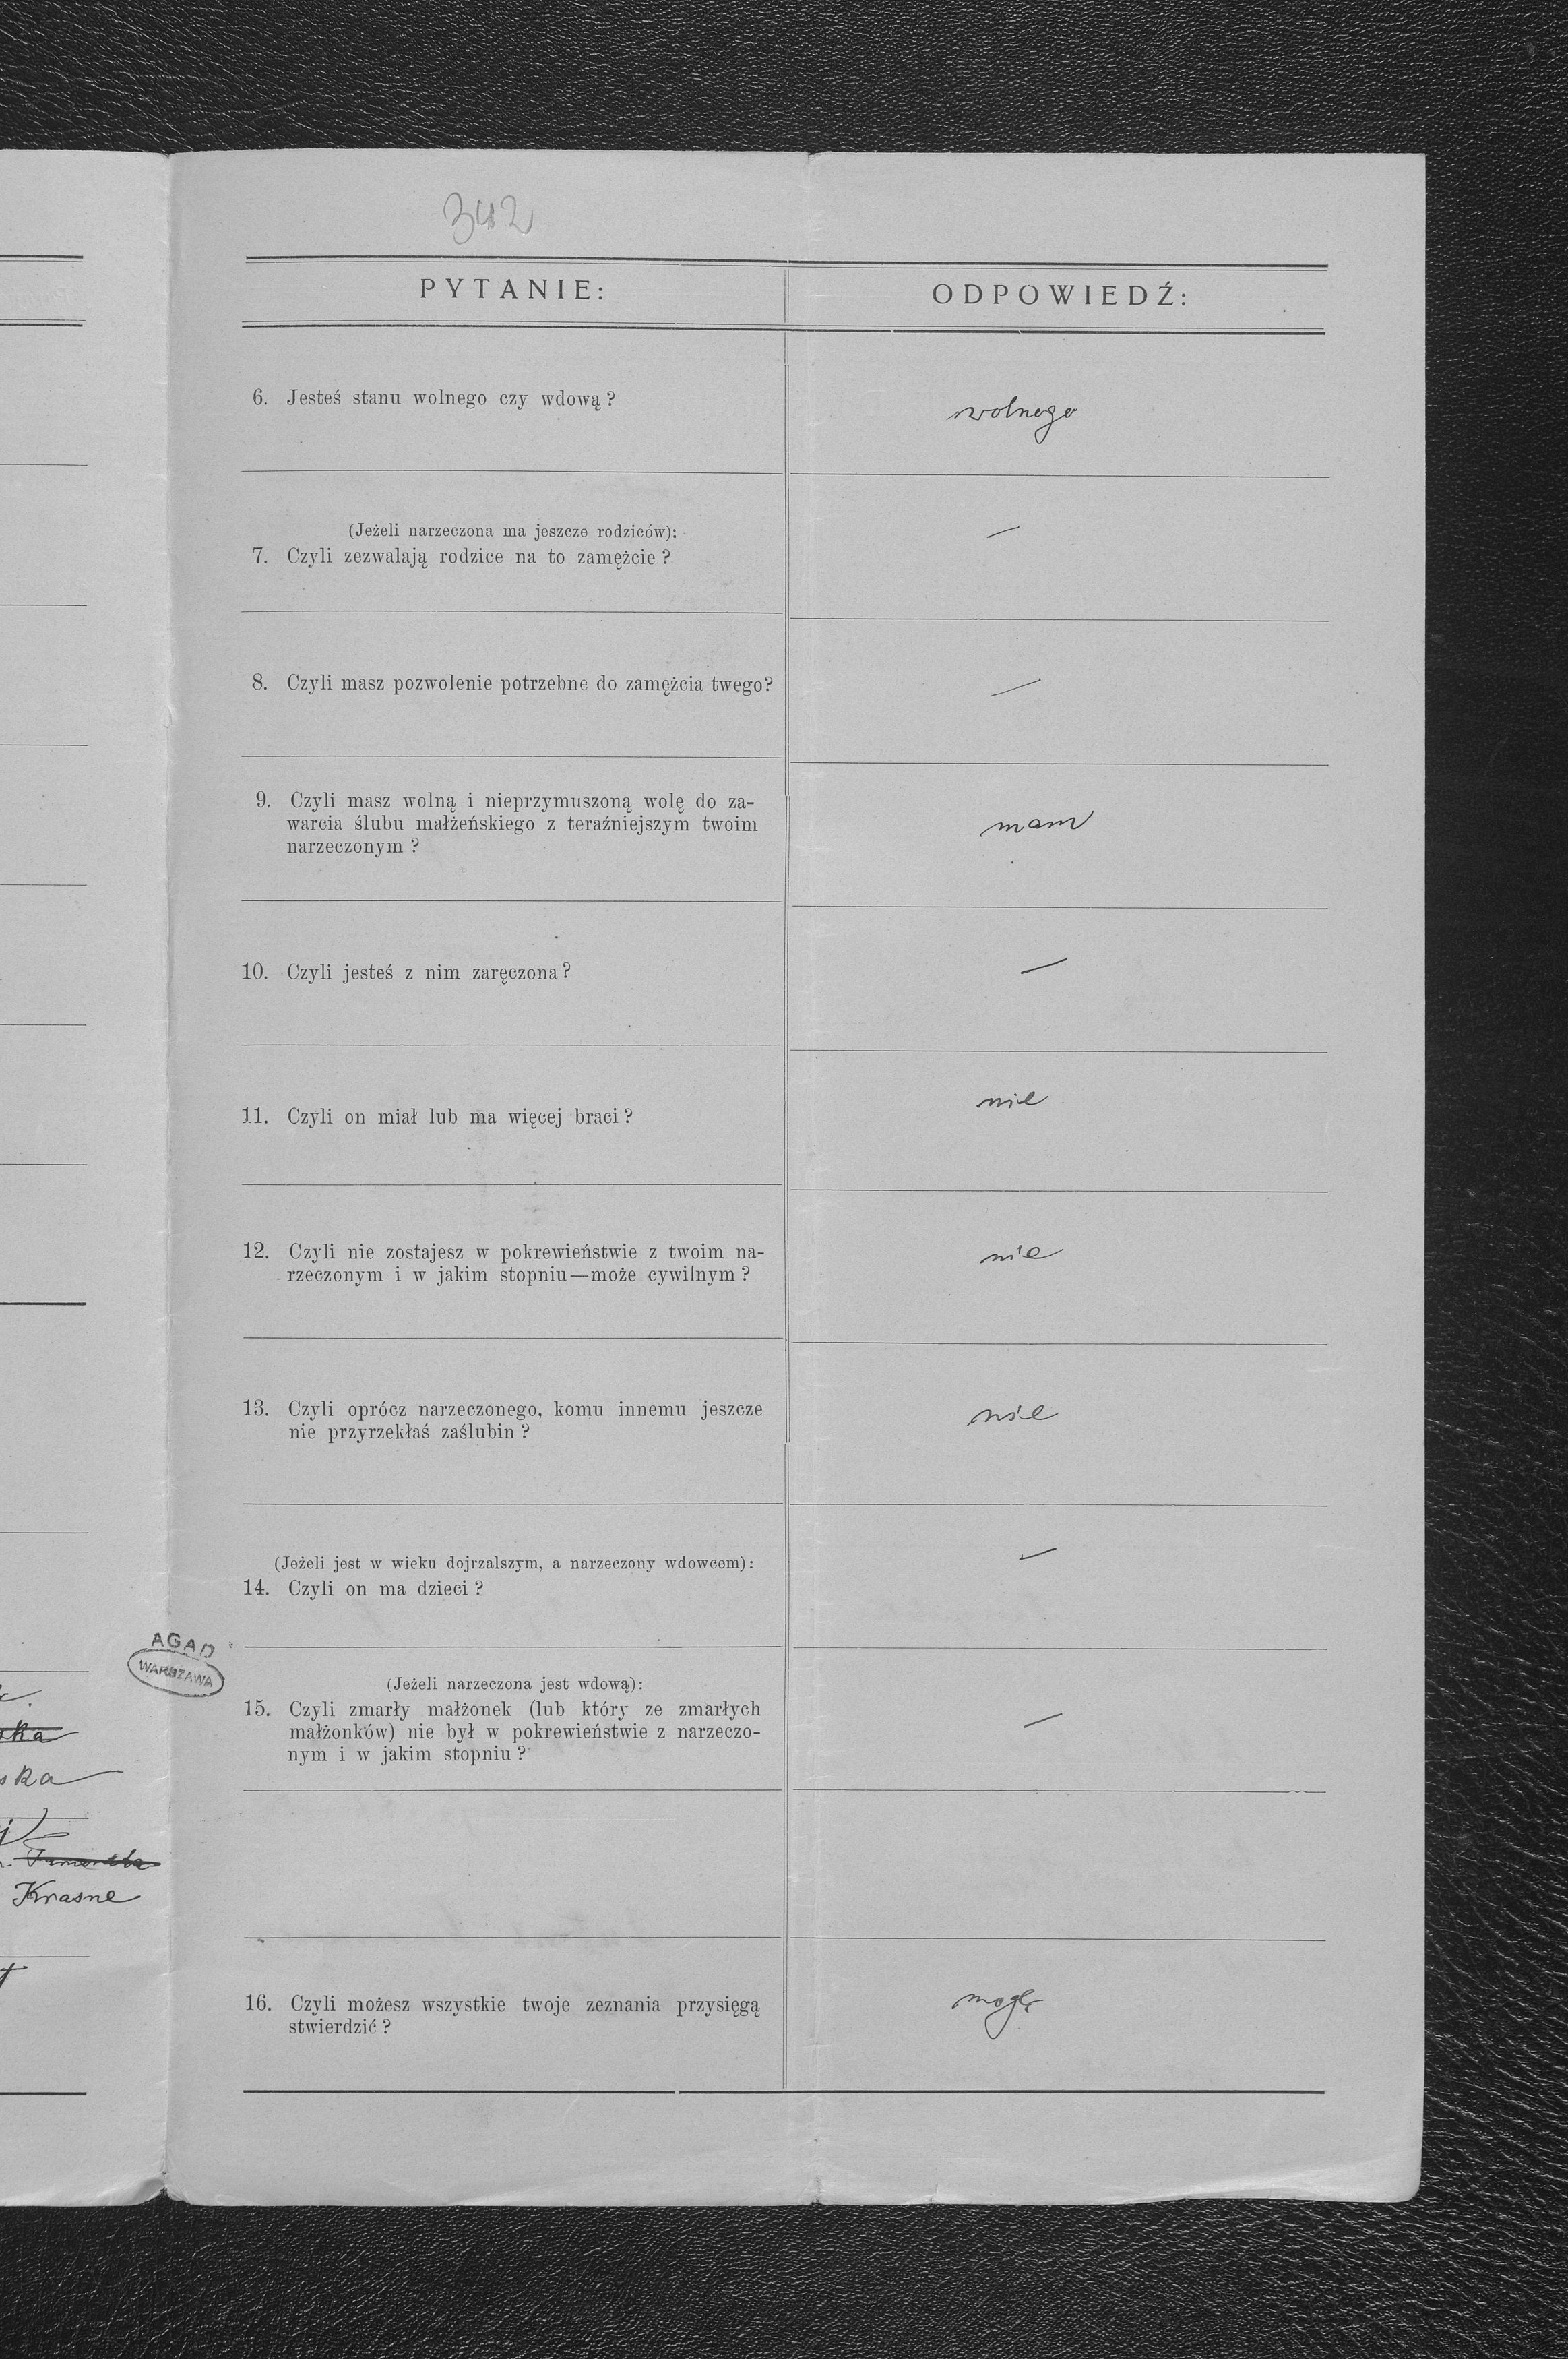 342
PYTANIE:
ODPOWIEDŹ:
6. Jesteś stanu wolnego czy wdową?
wolnego
(Jeżeli narzeczona ma jeszcze rodziców):
7. Czyli zezwalają rodzice na to zamężcie?
—
8. Czyli masz pozwolenie potrzebne do zamężcia twego?
—
9. Czyli masz wolną i nieprzymuszoną wolę do za-
warcia ślubu małżeńskiego z teraźniejszym twoim
narzeczonym?
mam
10. Czyli jesteś z nim zaręczona?
—
11. Czyli on miał lub ma więcej braci?
nie
12. Czyli nie zostajesz w pokrewieństwie z twoim na-
rzeczonym i w jakim stopniu—może cywilnym?
nie
13. Czyli oprócz narzeczonego, komu innemu jeszcze
nie przyrzekłaś zaślubin?
nie
(Jeżeli jest w wieku dojrzalszym, a narzeczony wdowcem):
14. Czyli on ma dzieci?
—
AGAD
WARSZAWA
(Jeżeli narzeczona jest wdową):
15. Czyli zmarły małżonek (lub który ze zmarłych
małżonków) nie był w pokrewieństwie z narzeczo-
nym i w jakim stopniu?
—
ska
ska
Krasne
16. Czyli możesz wszystkie twoje zeznania przysięgą
stwierdzić?
mogę